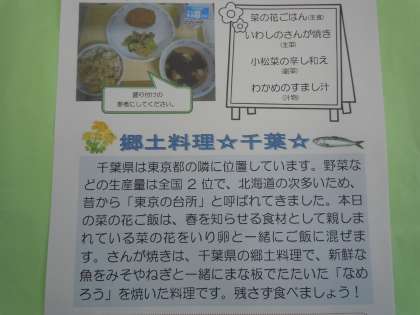 菜の花ごはん(主食)
いわしのさんが焼き
(主菜)
小松菜の辛し和え
(副菜)
わかめのすまし汁
(汁物)
盛り付けの
参考にしてください。
郷土料理☆千葉☆
千葉県は東京都の隣に位置しています。野菜な
どの生産量は全国2位で、北海道の次多いため、
昔から「東京の台所」と呼ばれてきました。本日
の菜の花ご飯は、春を知らせる食材として親しま
れている菜の花をいり卵と一緒にご飯に混ぜま
す。さんが焼きは、千葉県の郷土料理で、新鮮な
魚をみそやねぎと一緒にまな板でたたいた「なめ
ろう」を焼いた料理です。残さず食べましょう!